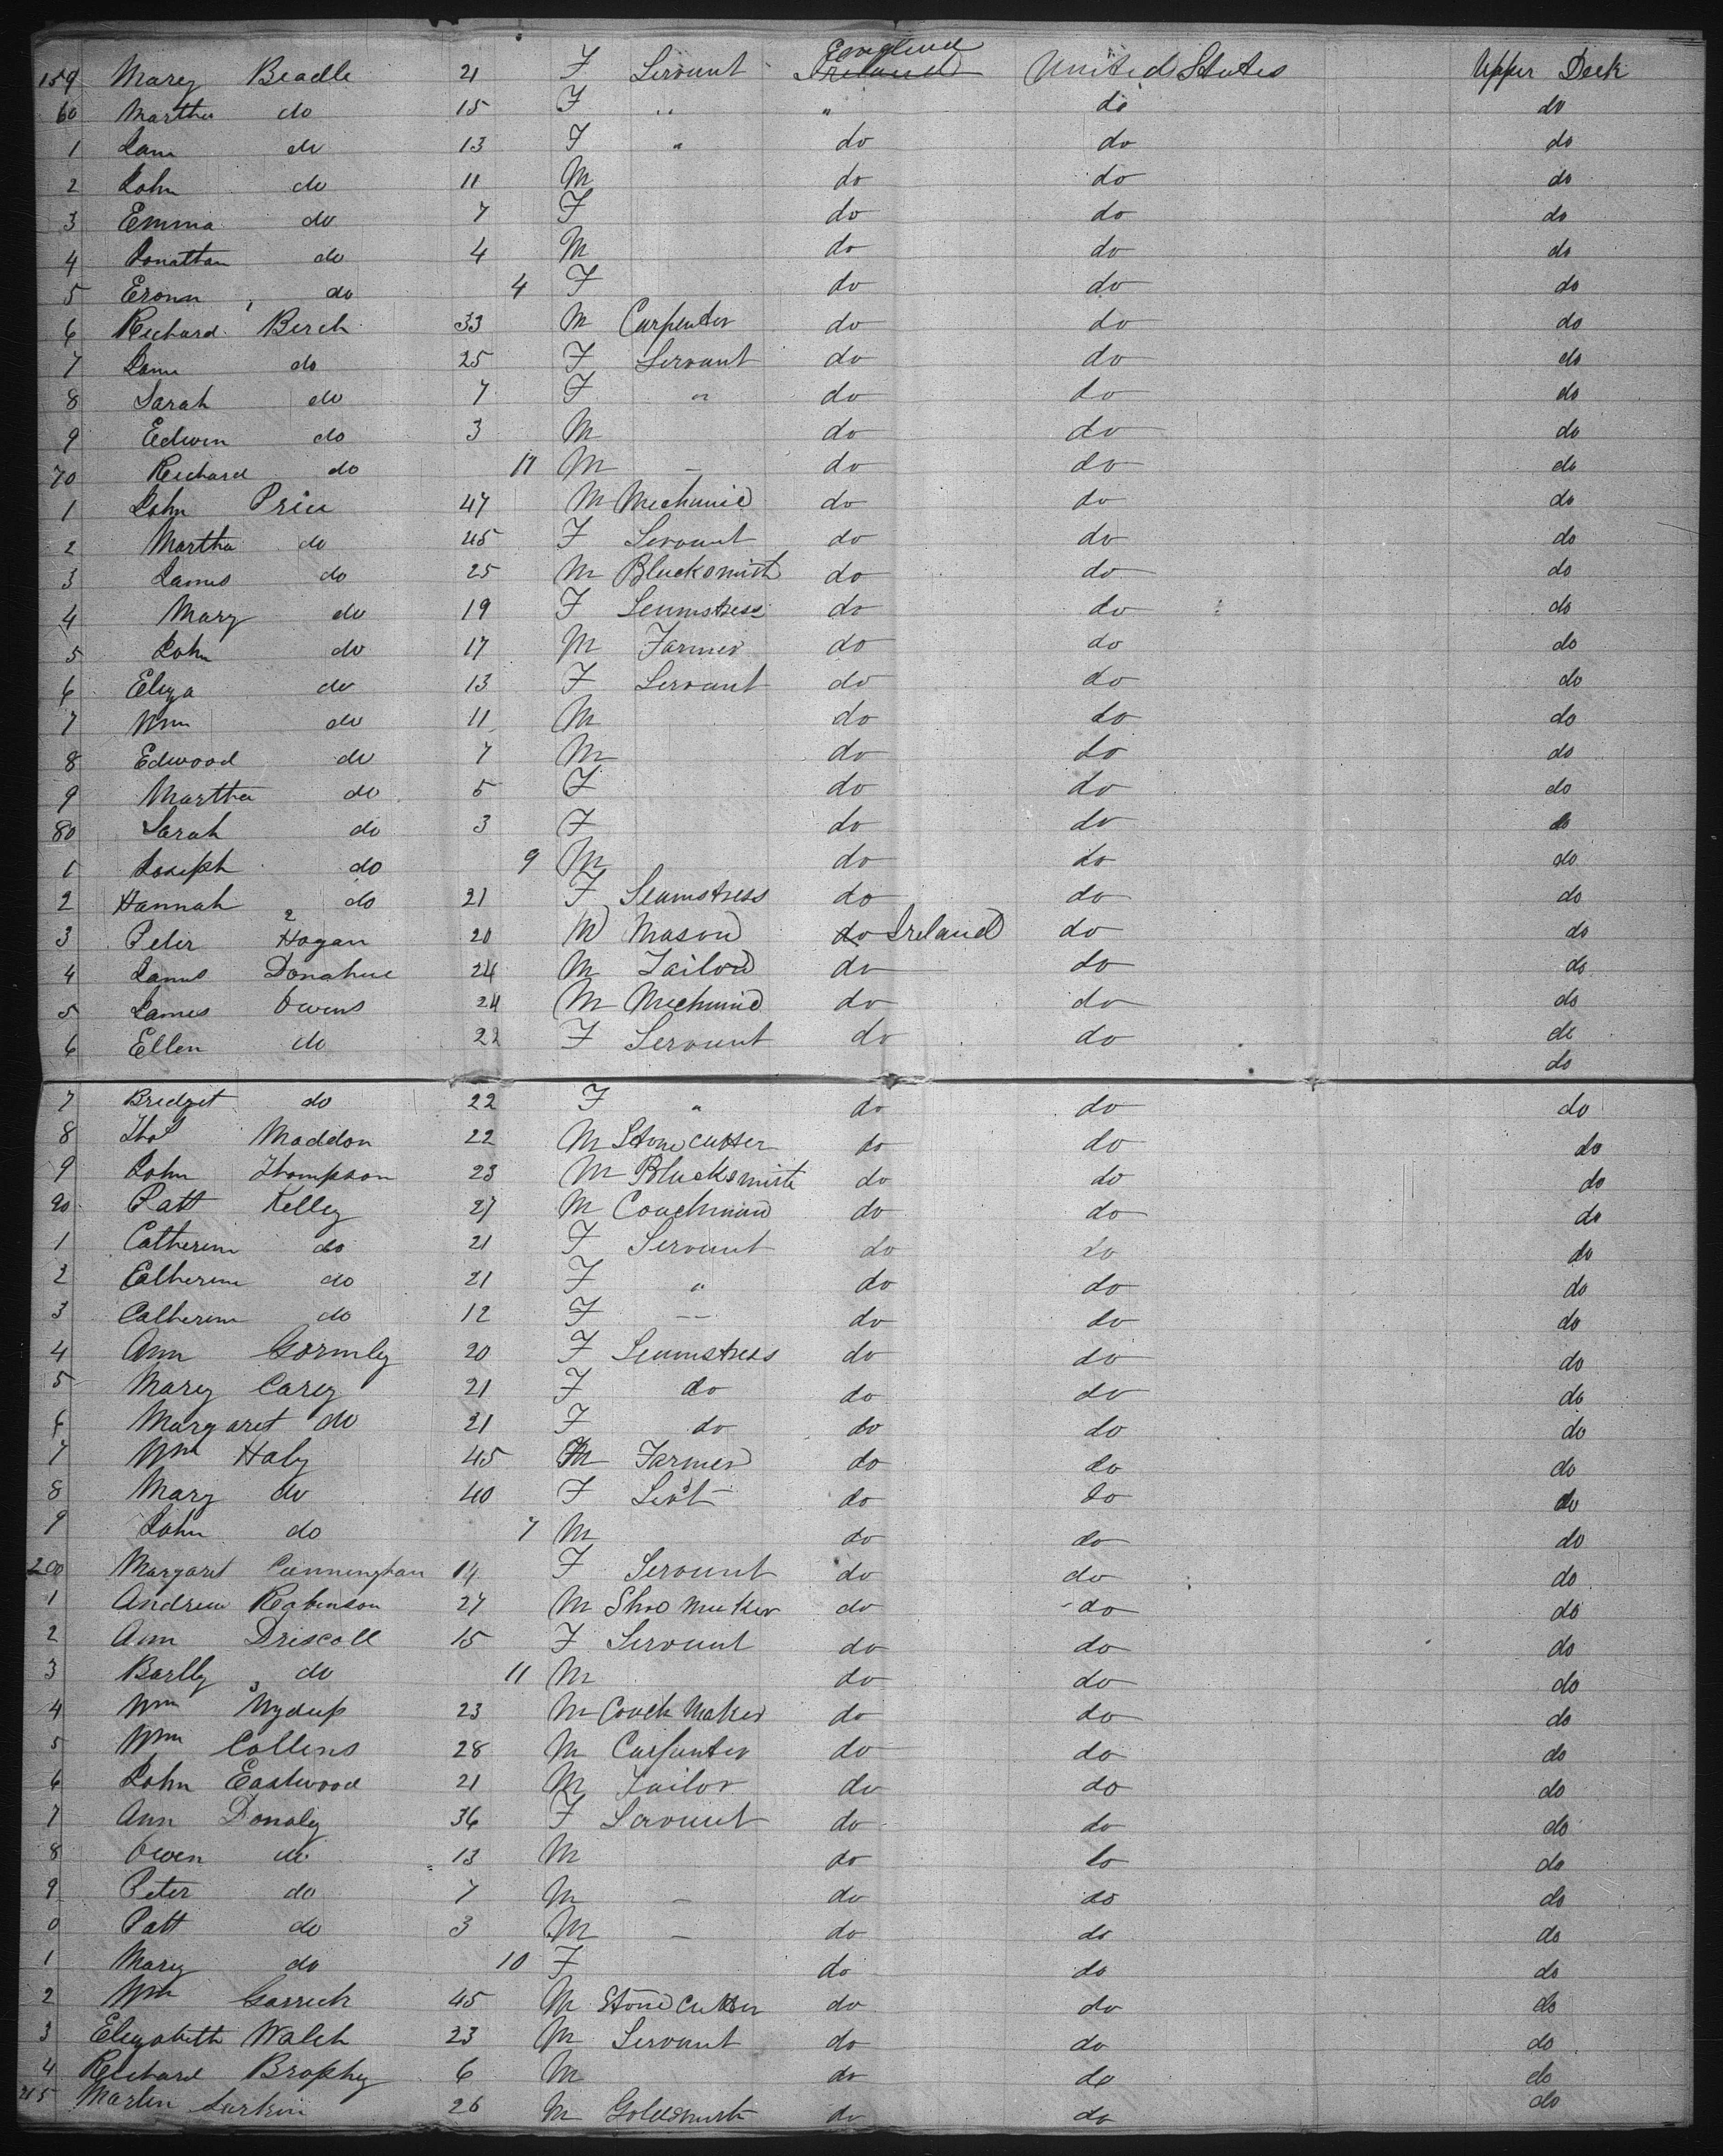 159 Mary Beadle 21 F Servant England Ireland United States Upper Deck
60 Martha do 15 F " " do do
1 Jane do 13 F " do do do
2 John do 11 M do do do
3 Emma do 7 F do do do
4 Jonathan do 4 M do do do
5 do 4 F do do do
6 Richard Berch 33 M Carpenter do do do
7 Jane do 25 F Servant do do do
8 Sarah do 7 F " do do do
9 Edwin do 3 M do do do
70 Richard do 11 M - do do do
1 John Price 47 M Mechanic do do do
2 Martha do 45 F Servant do do do
3 James do 25 M Blacksmith do do do
4 Mary do 19 F Seamstress do do do
5 John do 17 M Farmer do do do
6 Eliza do 13 F Servant do do do
7 Wm do 11 M do do do
8 Edwood do 7 M do do do
9 Martha do 5 F do do do
80 Sarah do 3 F do do do
1 Joseph do 9 M do do do
2 Hannah do 21 F Seamstress do do do
3 Peter Hogan 20 M Mason do Ireland do do
4 James Donahue 24 M Tailor do do do
5 James Owens 24 M Mechanic do do do
6 Ellen do 22 F Servant do do do
do
7 Bridget do 22 F " do do do
8 Thos Maddon 22 M Stone cutter do do do
9 John Thompson 23 M Blacksmith do do do
90 Patt Kelley 27 M Coachman do do do
1 Catherine do 21 F Servant do do do
2 Catherine do 21 F " do do do
3 Catherine do 12 F -- do do do
4 Ann Gormley 20 F Seamstress do do do
5 Mary Carey 21 F do do do do
6 Margaret do 21 F do do do do
7 Wm Haly 45 M Farmer do do do
8 Mary do 40 F Servt do do do
9 John do 7 M do do do
200 Margaret Cunningham 14 F Servant do do do
1 Andrew Robinson 27 M Shoe Maker do do do
2 Ann Driscoll 15 F Servant do do do
3 Bartly do 11 M do do do
4 Wm 23 M Coach Maker do do do
5 Wm Collins 28 M Carpenter do do do
6 John Eastwood 21 M Tailor do do do
7 Ann Donaly 36 F Servant do do do
8 Owen do 13 M do do do
9 Peter do 7 M - do do do
0 Patt do 3 M - do do do
1 Mary do 10 F do do do
2 Wm Garrick 45 M Stone Cutter do do do
3 Elizabeth Walch 23 M Servant do do do
4 Richard Brophy 6 M do do do
215 Martin Larkin 26 M Goldsmith do do do